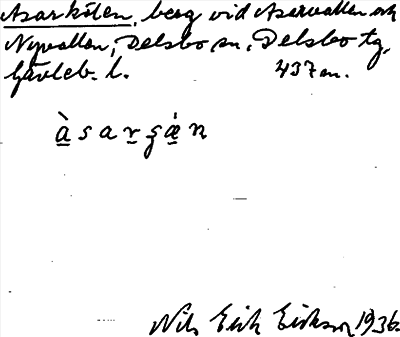 Asarkölen, berg vid Asarvallen och
Nyvallen, Delsbo sn, Delsbo tg,
Gävleb. l. 437 m.
àsarʂæ̇n
Nils Erik Eriksson 1936.